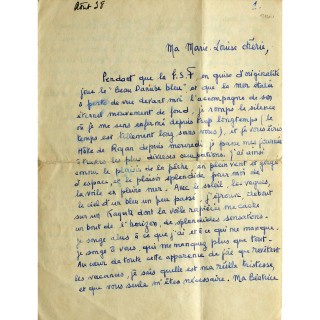 Août 58
1.
Ma Marie-Louise chérie,
Pendant que la T.S.F en guise d'originalité
joue le "Beau Danube bleu" et que la mer étale
à perte de vue devant moi l'accompagne de son
éternel mouvement de fond, je romps le silence
où je me suis enfermé depuis trop longtemps (le
temps est tellement long sans vous), et je vous écris
Hôte de Royan depuis mercredi, je passe ma journée
à toutes les plus diverses occupations. J'ai ainsi
connu le plaisir de la pêche, en plein vent et plein
d'espace, et le plaisir splendide pour moi de
la voile en pleine mer. Avec le soleil, les vagues,
le ciel d'un bleu un peu passé, j'éprouve debout
sur un Kayak dont la voile rapiécée me cache
un bout de l'horizon, de splendides sensations.
Je songe alors à ce que j'ai et à ce qui me manque.
Je songe à vous, qui me manquez plus que tout.
Au cœur de toute cette apparence de joie que revêtent
les vacances, je sais quelle est ma réelle tristesse,
et que vous seule m'êtes nécessaire. Ma Béatrice